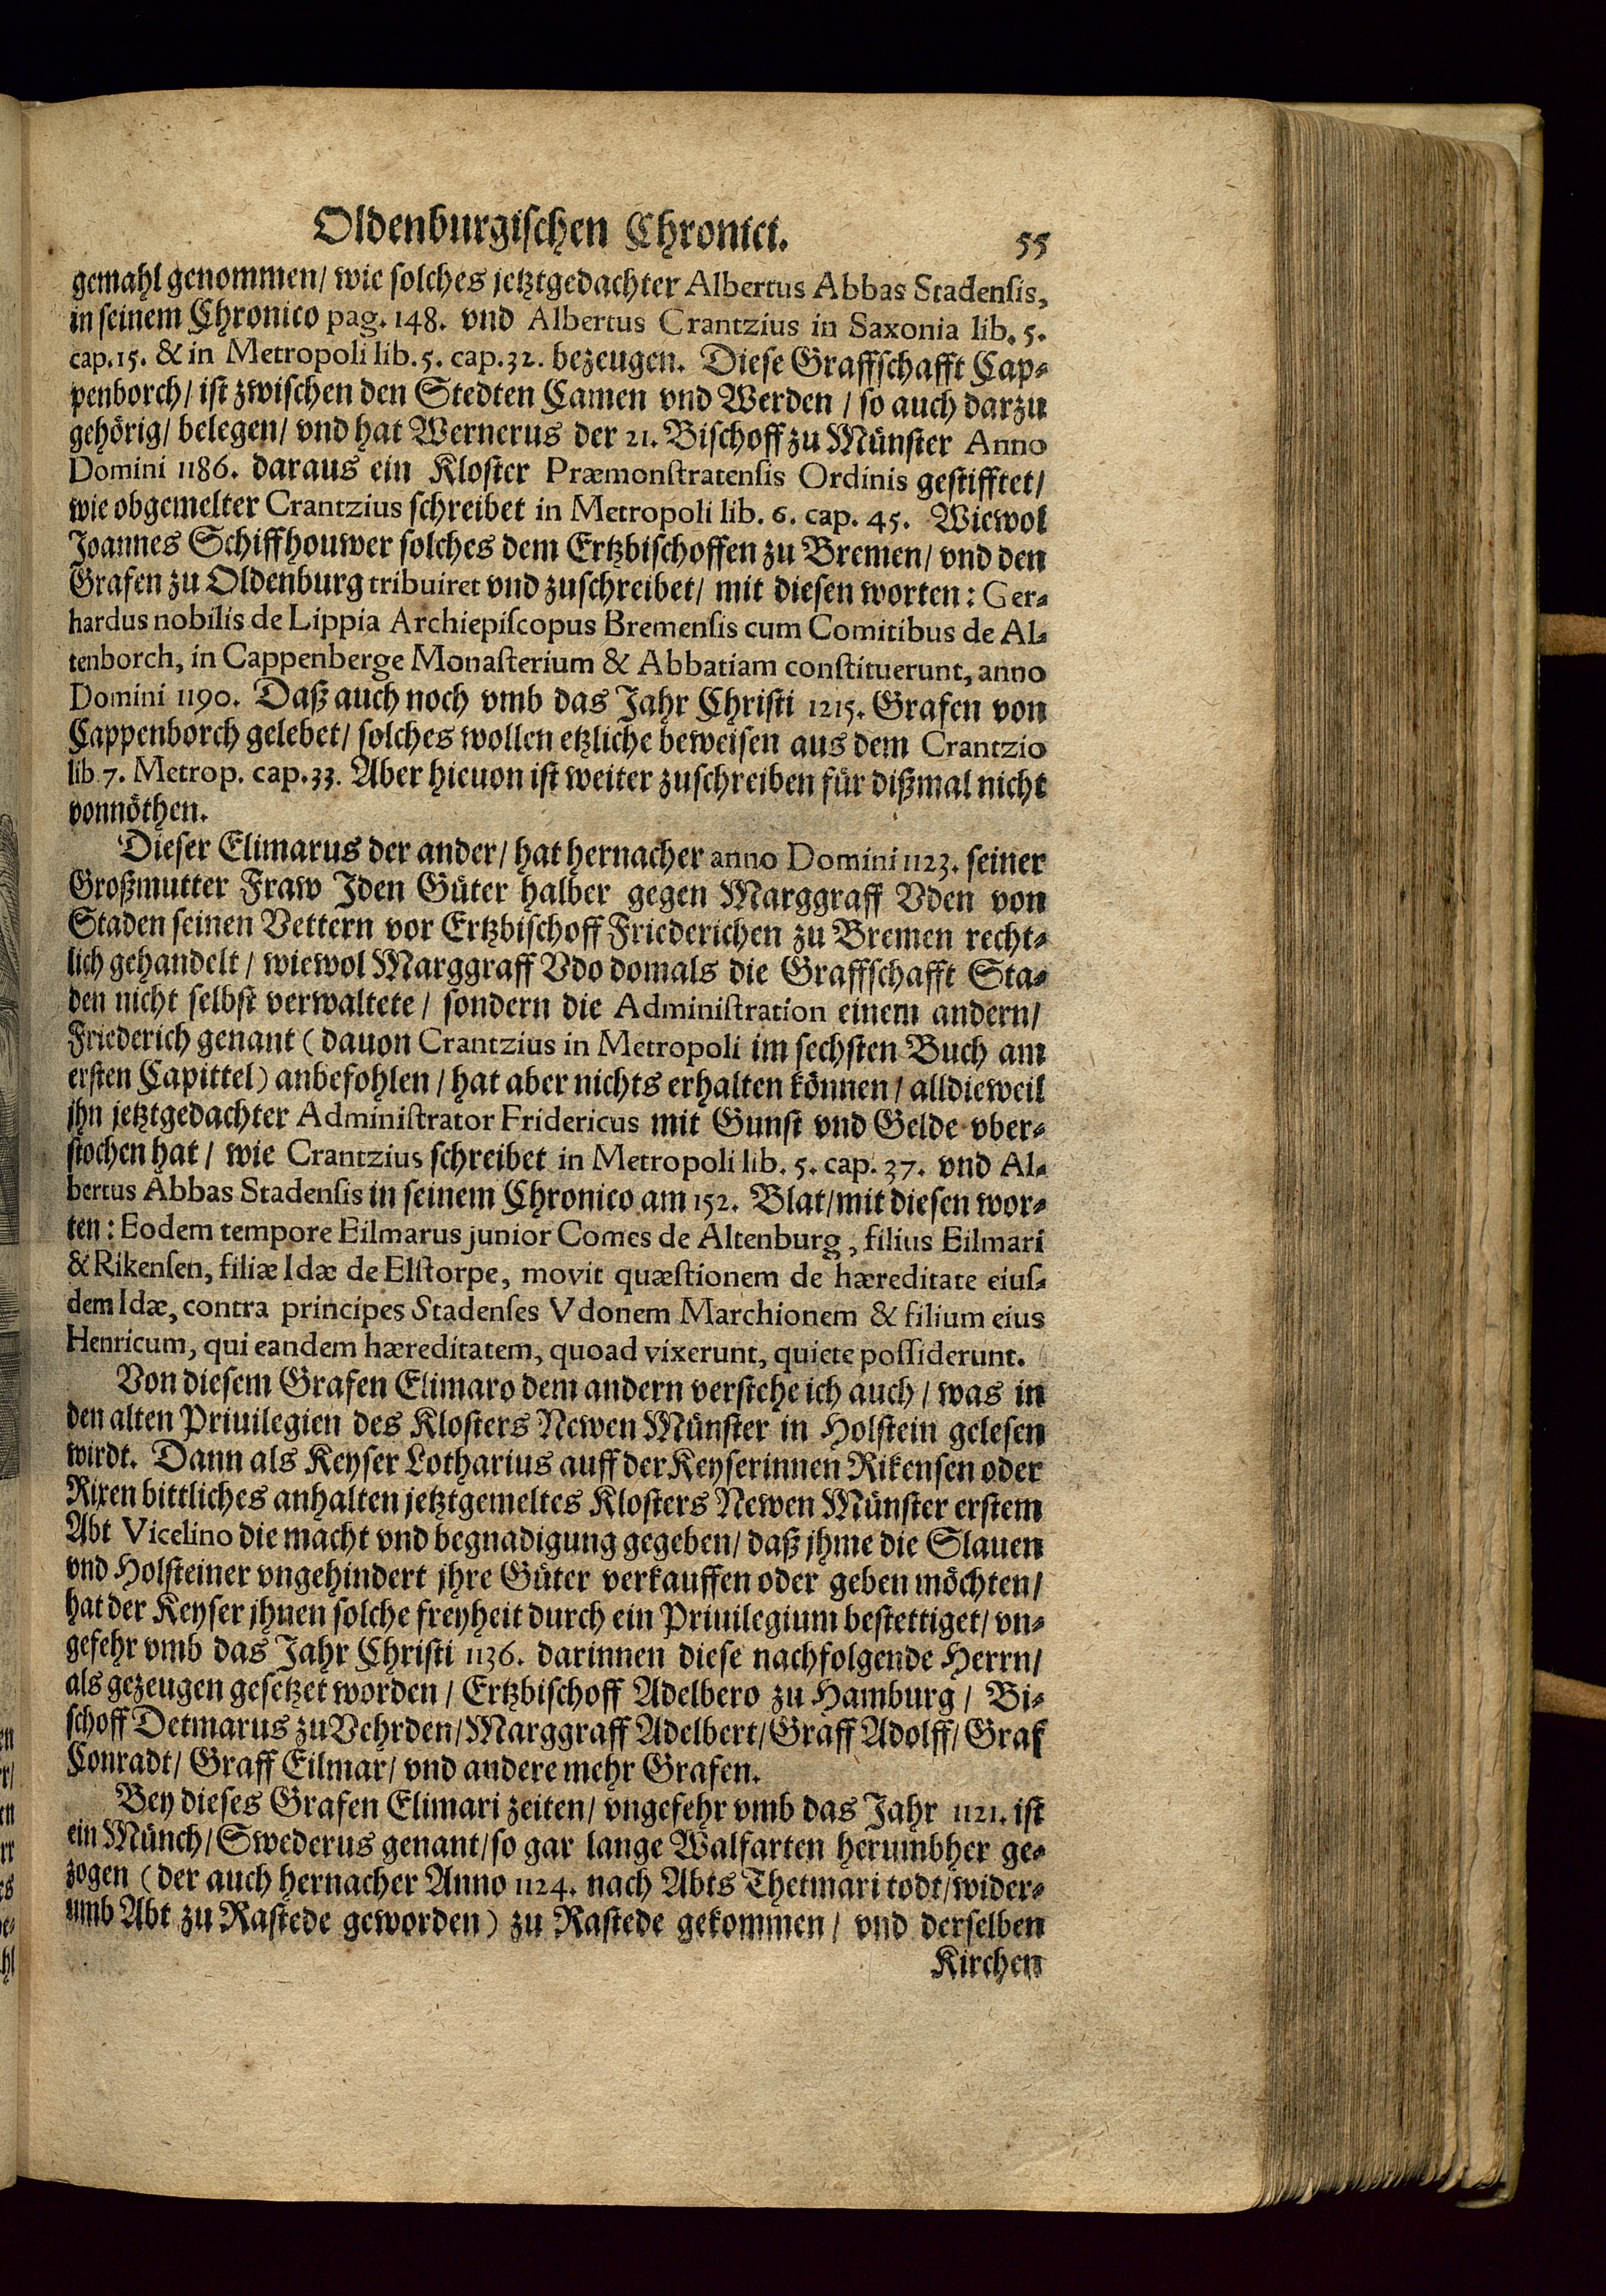 Oldenburgischen Chronici. 55
gemahl genommen/ wie solches jetztgedachter Albertus Abbas Stadensis,
in seinem Chronico pag. 148. vnd Albertus Crantzius in Saxonia lib. 5.
cap. 15. & in Metropoli lib. 5. cap. 32. bezeugen. Diese Graffschafft Cap-
penborch/ ist zwischen den Stedten Camen vnd Werden / so auch darzu
gehörig/ belegen/ vnd hat Wernerus der 21. Bischoff zu Münster Anno
Domini 1186. daraus ein Kloster Præmonstratensis Ordinis gestifftet/
wie obgemelter Crantzius schreibet in Metropoli lib. 6. cap. 45. Wiewol
Joannes Schiffhouwer solches dem Ertzbischoffen zu Bremen/ vnd den
Grafen zu Oldenburg tribuiret vnd zuschreibet/ mit diesen worten: Ger-
hardus nobilis de Lippia Archiepiscopus Bremensis cum Comitibus de Al-
tenborch, in Cappenberge Monasterium & Abbatiam constituerunt, anno
Domini 1190. Daß auch noch vmb das Jahr Christi 1215. Grafen von
Cappenborch gelebet/ solches wollen etzliche beweisen aus dem Crantzio
lib. 7. Metrop. cap. 33. Aber hieuon ist weiter zuschreiben für dißmal nicht
vonnöthen.
Dieser Elimarus der ander/ hat hernacher anno Domini 1123. seiner
Großmutter Fraw Iden Güter halber gegen Marggraff Vden von
Staden seinen Vettern vor Ertzbischoff Friederichen zu Bremen recht-
lich gehandelt / wiewol Marggraff Vdo domals die Graffschafft Sta-
den nicht selbst verwaltete / sondern die Administration einem andern/
Friederich genant (dauon Crantzius in Metropoli im sechsten Buch am
ersten Capittel) anbefohlen / hat aber nichts erhalten können / alldieweil
jhn jetztgedachter Administrator Fridericus mit Gunst vnd Gelde vber-
stochen hat / wie Crantzius schreibet in Metropoli lib. 5. cap. 37. vnd Al-
bertus Abbas Stadensis in seinem Chronico am 152. Blat/ mit diesen wor-
ten: Eodem tempore Eilmarus junior Comes de Altenburg, filius Eilmari
& Rikensen, filiæ Idæ de Elstorpe, movit quæstionem de hæreditate eius-
dem Idæ, contra principes Stadenses Vdonem Marchionem & filium eius
Henricum, qui eandem hæreditatem, quoad vixerunt, quiete possiderunt.
Von diesem Grafen Elimaro dem andern verstehe ich auch / was in
den alten Priuilegien des Klosters Newen Münster in Holstein gelesen
wirdt. Dann als Keyser Lotharius auff der Keyserinnen Rikensen oder
Rixen bittliches anhalten jetztgemeltes Klosters Newen Münster erstem
Abt Vicelino die macht vnd begnadigung gegeben/ daß jhme die Slauen
vnd Holsteiner vngehindert jhre Güter verkauffen oder geben möchten/
hat der Keyser jhnen solche freyheit durch ein Priuilegium bestettiget/ vn-
gefehr vmb das Jahr Christi 1136. darinnen diese nachfolgende Herrn/
als gezeugen gesetzet worden / Ertzbischoff Adelbero zu Hamburg / Bi-
schoff Detmarus zu Vehrden/ Marggraff Adelbert/ Graff Adolff/ Graf
Conradt/ Graff Eilmar/ vnd andere mehr Grafen.
Bey dieses Grafen Elimari zeiten/ vngefehr vmb das Jahr 1121. ist
ein Münch/ Swederus genant/ so gar lange Walfarten herumbher ge-
zogen (der auch hernacher Anno 1124. nach Abts Thetmari todt/ wider-
umb Abt zu Rastede geworden) zu Rastede gekommen / vnd derselben
Kirchen